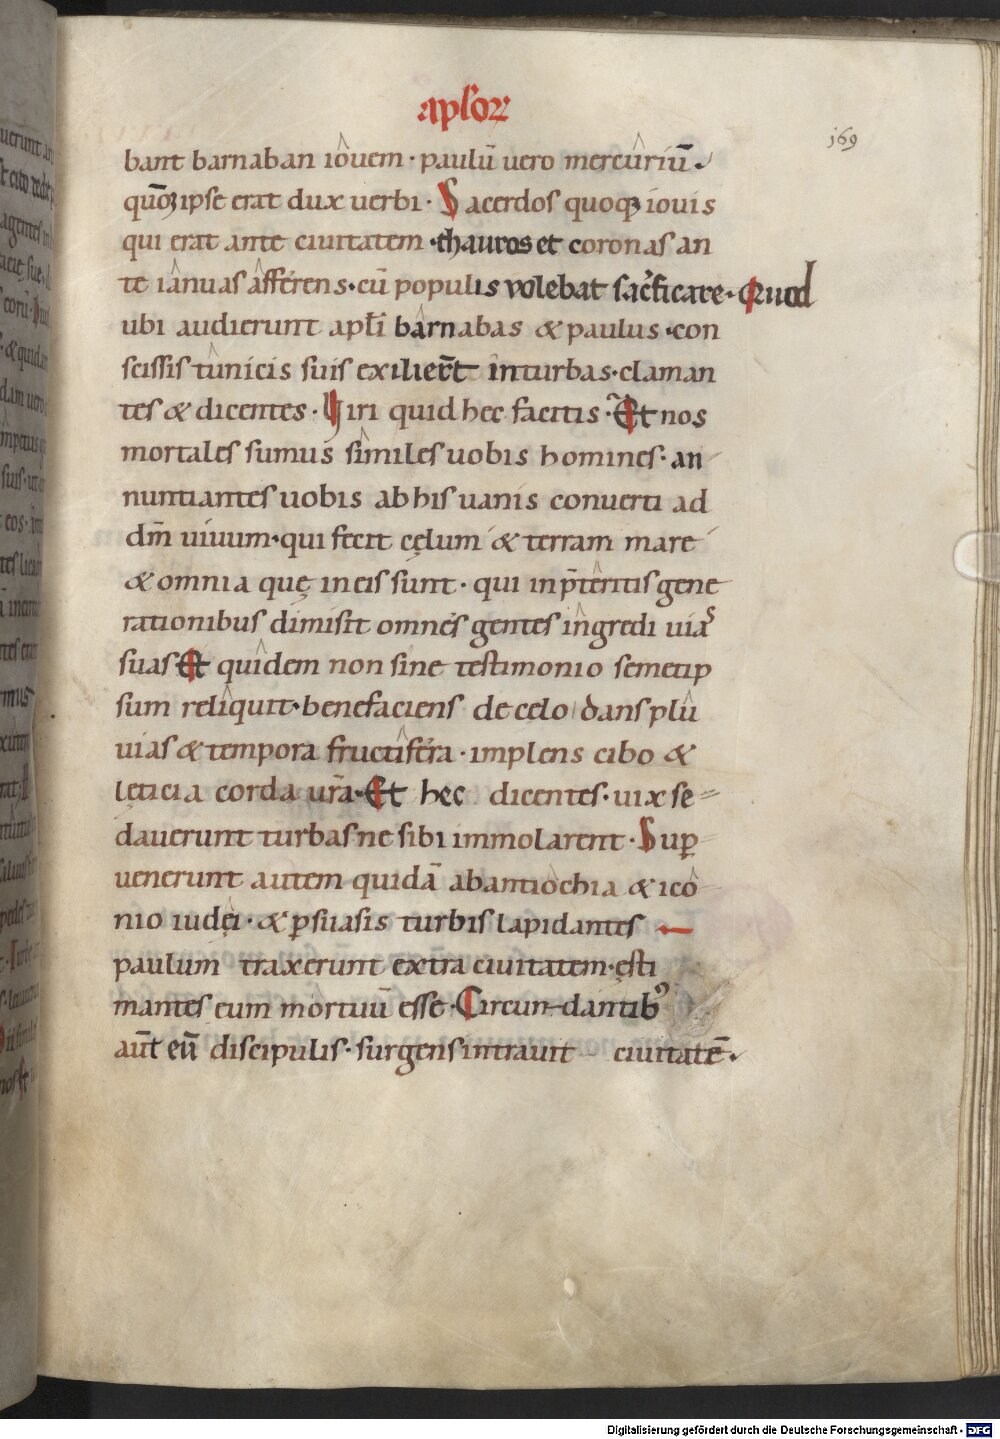 apl'oꝝ
169
bant barnaban iôuem · paulū uero mercûriū ·
quō ipse erat dux uerbi · Sacerdos quoq; iouis
qui erat ante ciuitatem · thauros et coronas an
te iânuas âfférens · cū populis volebat sac̓ficare · Quod
ubi audierunt apl̄i bârnabas & paulus · con
scissis tûnicis suis exilier̄t in turbas · claman
tes & dicentes · Uiri quid hec facitis · Et nos
mortales sumus sîmiles uobis homines · an
nuntiantes uobis ab his uanis conuerti ad
dm̄ uiuum · qui fecit cęlum & terram mare
& omnia quę in eis sunt · qui in p̄têritis gene
rationibus dimisit omnes gentes îngredi uias
suas Et quîdem non sine testimonio semetip
sum relîquit · benefaciens de cęlo dans plû
uias & tempora fructîféra · implens cibo &
lęticia corda ur̄a · Et hec dicentes · uix se
dauerunt turbas ne sibi immolarent · Sup̱
uenerunt autem quidā ab antiôchia & icô
nio iudęi · & p̱suasis turbis lapidantes
paulum traxerunt extra ciuitatem · ęsti
mantes eum môrtuū esse · Circun-dantib⁹
aūt eū discipulis · surgens intrauit ciuitatē ·
Digitalisierung gefördert durch die Deutsche Forschungsgemeinschaft - DFG